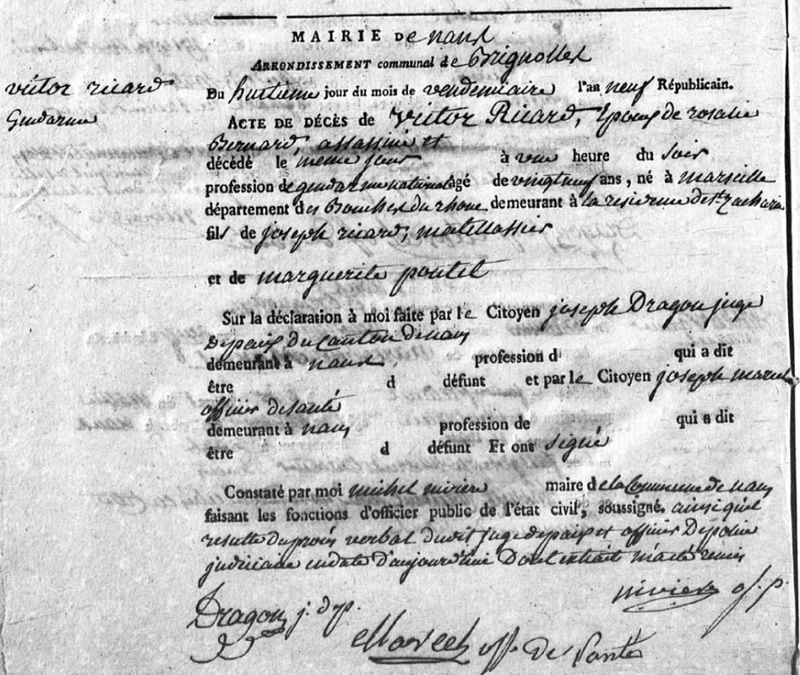 MAIRIE De nans
ARRONDISSEMENT communal de Brignolles
victor ricard
Gendarme
Du huitieme jour du mois de vendemiaire l'an neuf Républicain.
ACTE DE DÉCÈS de Victor Ricard, Epoux de rosalie
Bernard, assassiné et
décédé le meme jour à une heure du soir
profession de gendarme national âgé de vingt neuf ans, né à marseille
département des Bouches du rhone demeurant à la residence de st. zacharie
fils de joseph ricard, matellassier
et de marguerite pontet
Sur la déclaration à moi faite par le Citoyen joseph Dragon juge
De paix du canton de nans
demeurant à nans profession d qui a dit
être d défunt et par le Citoyen joseph marcel
officier de santé
demeurant à nans profession de qui a dit
être d défunt Et ont signé
Constaté par moi michel niviere maire de la Commune de nans
faisant les fonctions d'officier public de l'état civil, soussigné, ainsi qu'il
resulte du procès verbal dudit juge de paix et officier De police
judiciaire en date d'aujourdhui Dont extrait m'a été remis
niviere of. p.
Dragon j. d. p.
Marcel off. De Santé